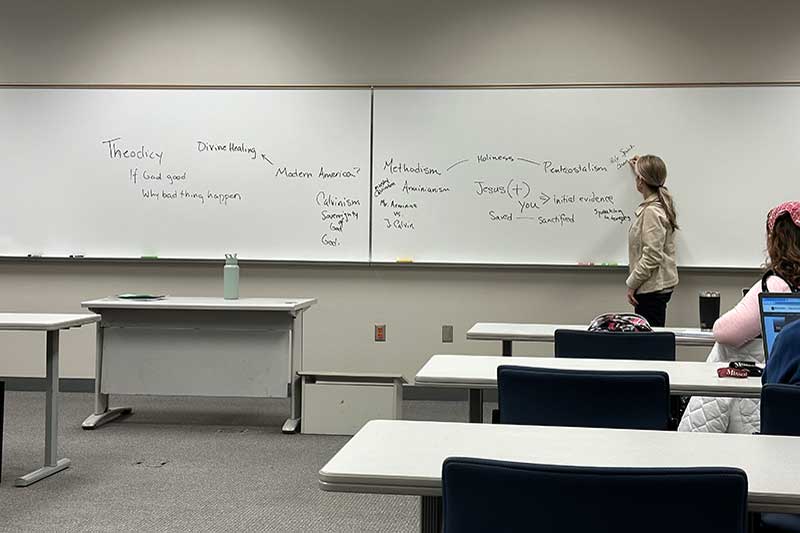 Theodicy
If God good
Why bad thing happen
Divine Healing
Modern America?
Calvinism
Sovereignty
of
God
God.
Methodism
Holiness
Pentecostalism
Arminianism
Mr. Arminae
vs.
J. Calvin
Jesus (+)
you → Initial evidence
Saved — Sanctified
Speaking
in tongues